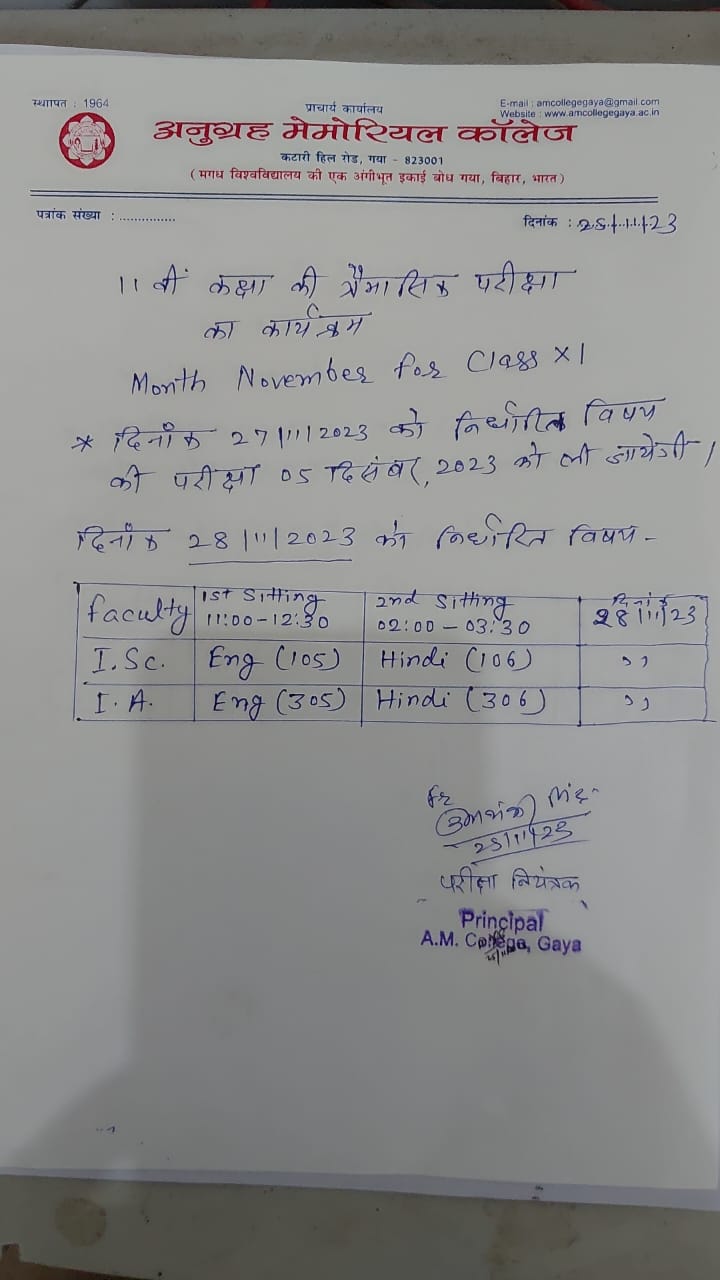 स्थापित : 1964
प्राचार्य कार्यालय
E-mail : amcollegegaya@gmail.com
Website : www.amcollegegaya.ac.in
अनुग्रह मेमोरियल कॉलेज
कटारी हिल रोड, गया - 823001
( मगध विश्वविद्यालय की एक अंगीभूत इकाई बोध गया, बिहार, भारत )
पत्रांक संख्या : ...............
दिनांक : 25/11/23
11 वीं कक्षा की त्रैमासिक परीक्षा
का कार्यक्रम
Month November for Class XI
* दिनाँक 27/11/2023 को निर्धारित विषय
की परीक्षा 05 दिसंबर, 2023 को ली जायेगी।
दिनाँक 28/11/2023 को निर्धारित विषय -
faculty 1st Sitting 11:00-12:30 2nd Sitting 02:00-03:30 दिनांक 28/11/23
I.Sc. Eng (105) Hindi (106) ,,
I.A. Eng (305) Hindi (306) ,,
25/11/23
परीक्षा नियंत्रक
Principal
A.M. College, Gaya